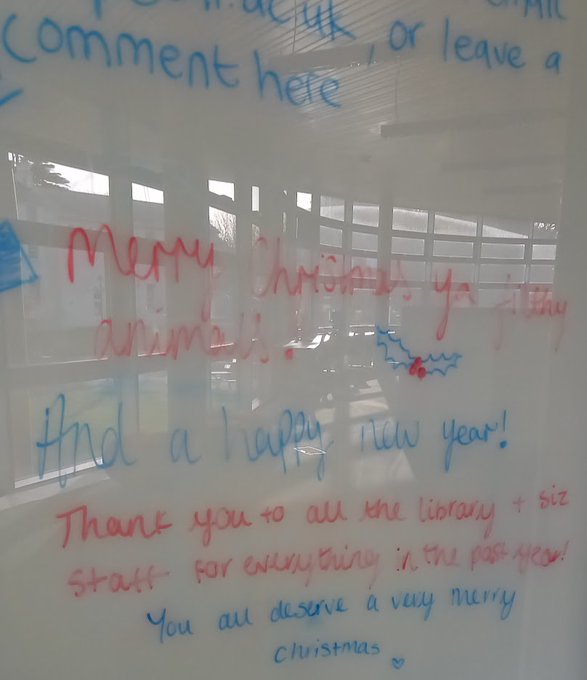 .ac.uk, or leave a
comment here
Merry Christmas ya filthy
animals!
And a happy new year!
Thank you to all the library + siz
staff for everything in the past year!
You all deserve a very merry
christmas